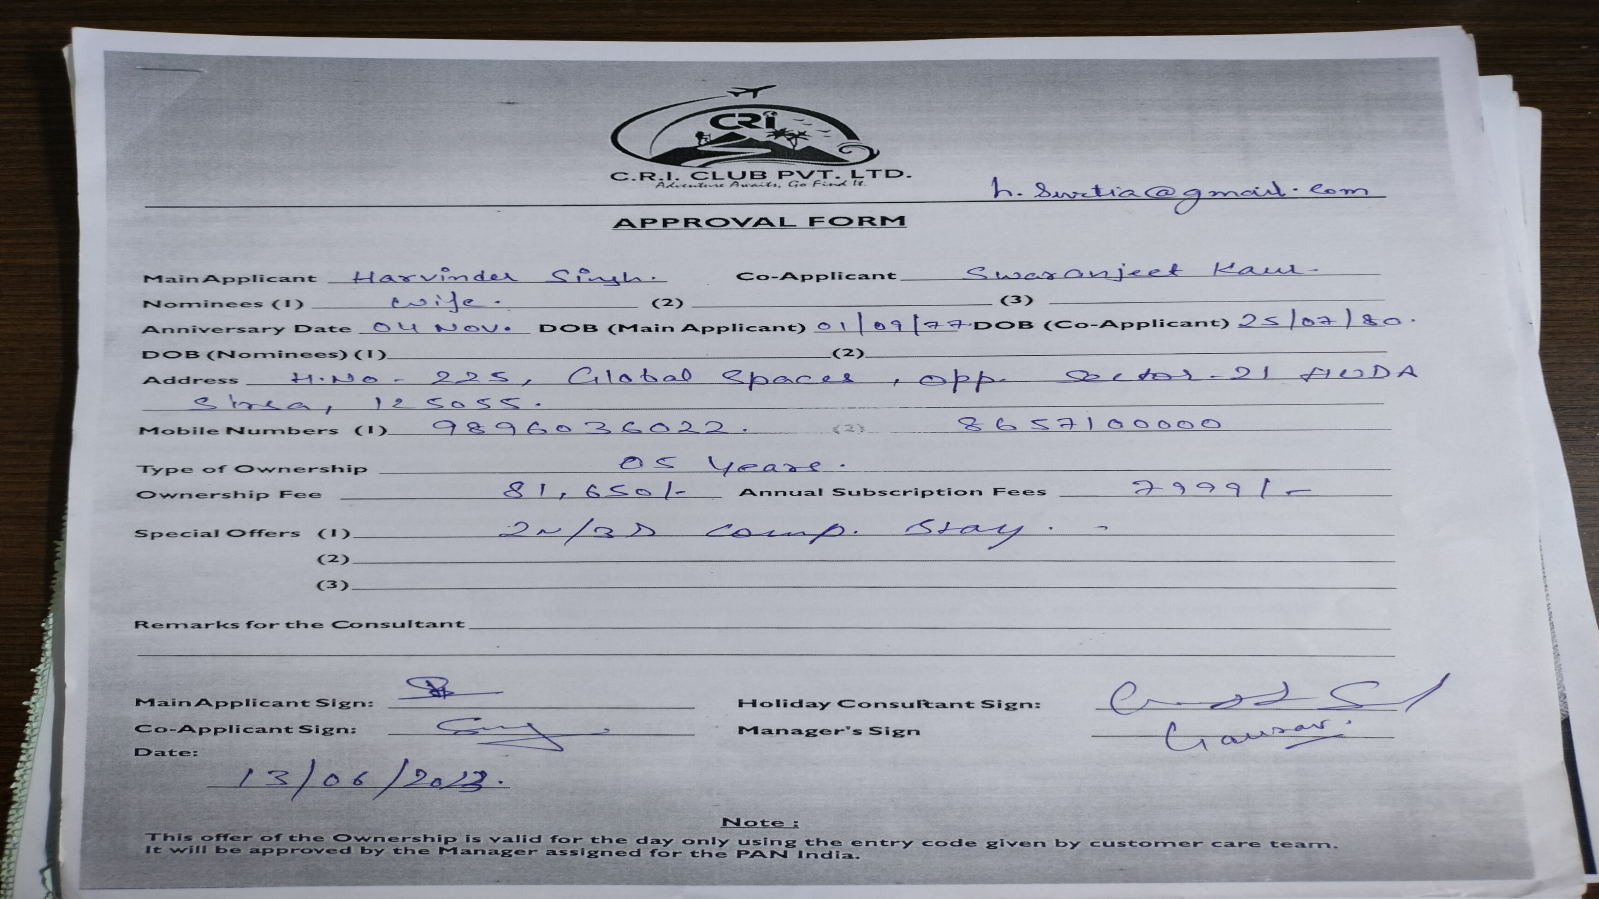 CRI
C.R.I. CLUB PVT. LTD.
Adventure Awaits, Go Find It.
h.surtia@gmail.com
APPROVAL FORM
Main Applicant Harvinder Singh. Co-Applicant Swaranjeet Kaur.
Nominees (1) Wife. (2) (3)
Anniversary Date 04 Nov. DOB (Main Applicant) 01/09/77 DOB (Co-Applicant) 25/07/80.
DOB (Nominees) (1) (2)
Address H.No - 225, Global Spaces, opp. Sector-21 HUDA
Sirsa, 125055.
Mobile Numbers (1) 9896036022. (2) 8657100000
Type of Ownership 05 Years.
Ownership Fee 81,650/- Annual Subscription Fees 7999/-
Special Offers (1) 2N/3D comp. Stay.
(2)
(3)
Remarks for the Consultant
Main Applicant Sign: Holiday Consultant Sign:
Co-Applicant Sign: Manager's Sign
Date:
13/06/2023.
Note :
This offer of the Ownership is valid for the day only using the entry code given by customer care team.
It will be approved by the Manager assigned for the PAN India.